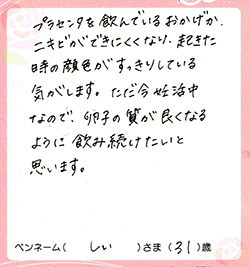 プラセンタを飲んでいるおかげか、
ニキビができにくくなり、起きた
時の顔色がすっきりしている
気がします。ただ今妊活中
なので、卵子の質が良くなる
ように飲み続けたいと
思います。
ペンネーム( しい )さま(31)歳